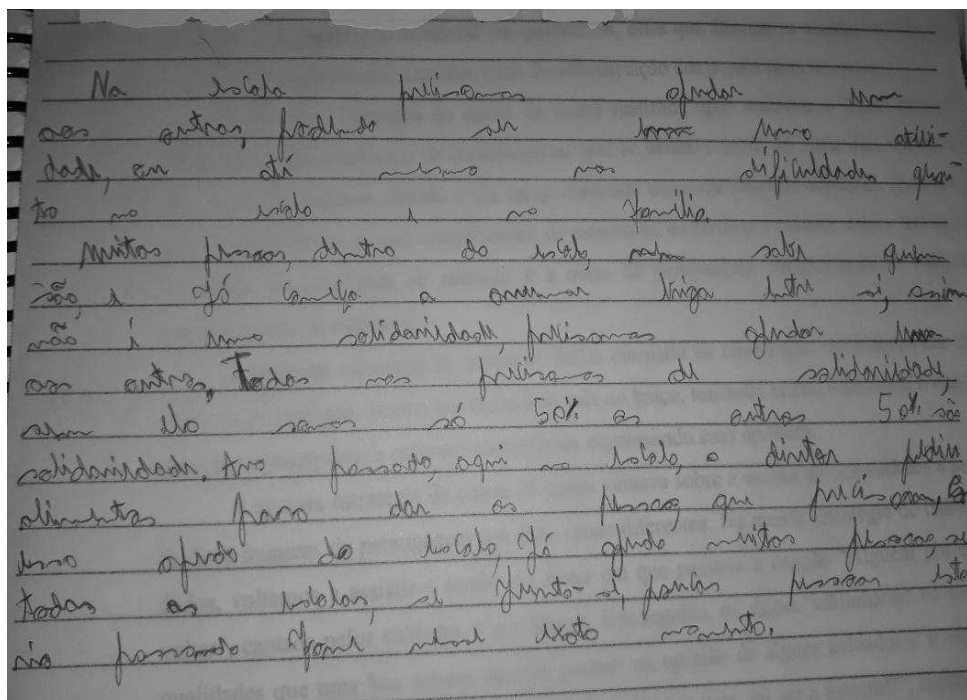 Na escola precisamos ajudar uns
aos outros, podendo ser uma ativi-
dade, em até mesmo nas dificuldades quan
to na escola e na família.
Muitas pessoas, dentro da escola, nem sabe quem
são, e já começa a arrumar briga entre si, assim
não é uma solidariedade, precisamos ajudar uns
aos outros, Todos nos precisamos de solidariedade,
sem ela somos só 50% os outros 50% são
solidariedade. Ano passado, aqui na escola, o diretor pediu
alimentos para dar as pessoas que precisavam, e
uma ajuda da escola, já ajuda muitas pessoas, se
todas as escolas, se junta-se, poucas pessoas esta
rião passando fome nesse exato momento.